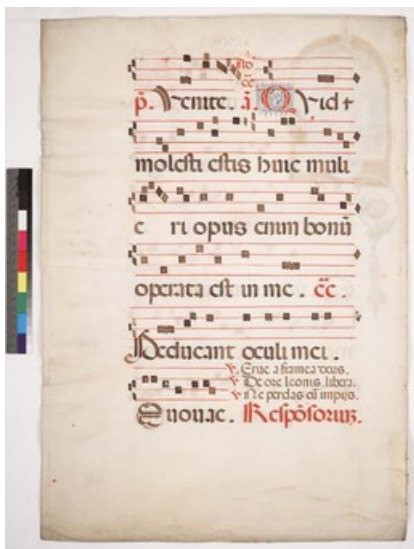 p̄. Venite. ā. Quid +
molesti estis huic muli
e ri opus enim bonū
operata est in me. c̄c̄.
Deducant oculi mei.
℣. Erue a framea deus.
℣. De ore leonis, libera.
℣. Ne perdas cū impijs.
Euouae. Respōsoriuz.